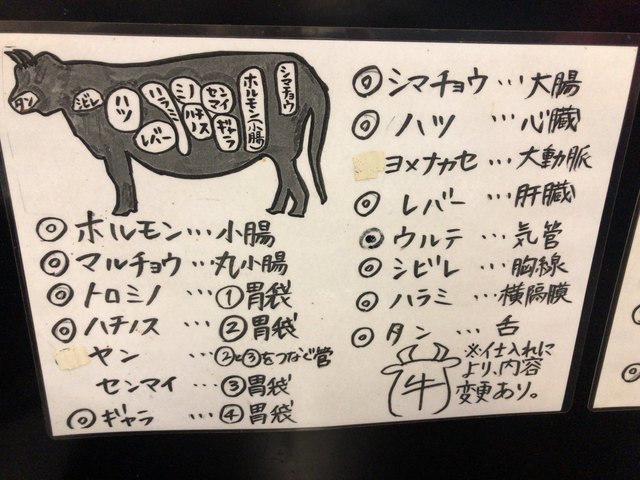 タン
シビレ
ハツ
レバー
ハラミ
ミノ
ハチノス
センマイ
ギャラ
ホルモン小腸
シマチョウ
◎ホルモン…小腸
◎マルチョウ…丸小腸
◎トロミノ…①胃袋
◎ハチノス…②胃袋
ヤン…②と③をつなぐ管
センマイ…③胃袋
◎ギャラ…④胃袋
◎シマチョウ…大腸
◎ハツ…心臓
ヨメナカセ…大動脈
◎レバー…肝臓
◎ウルテ…気管
◎シビレ…胸線
◎ハラミ…横隔膜
◎タン…舌
牛
※仕入れに
より、内容
変更あり。